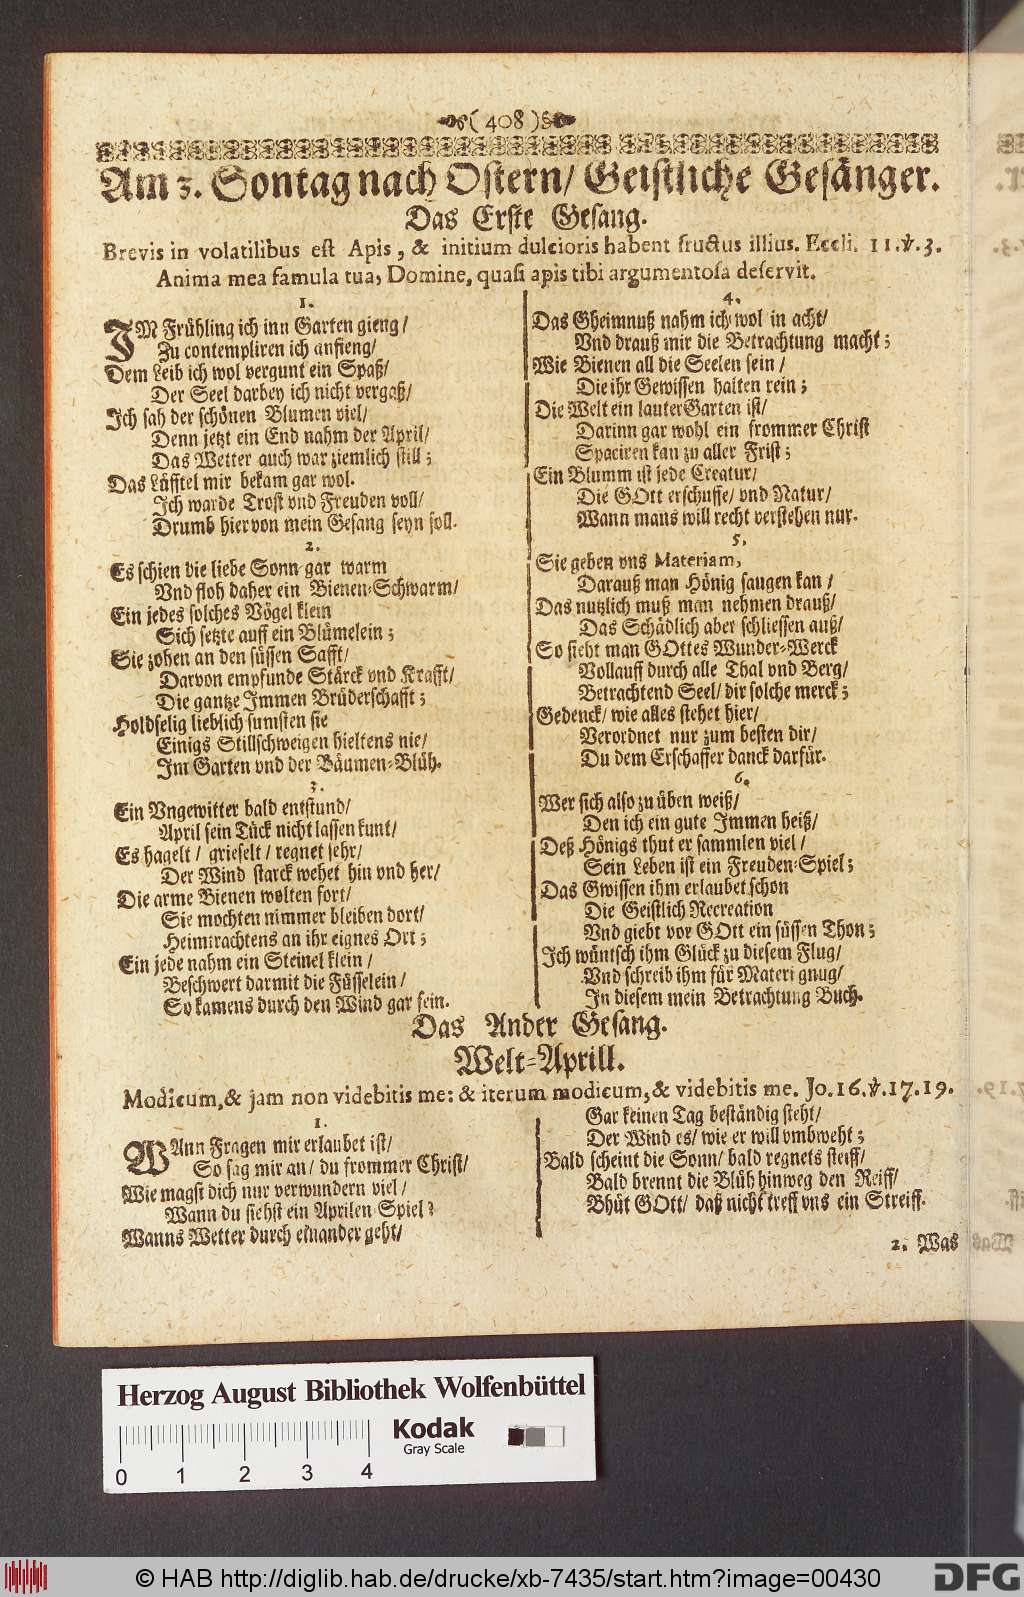 ( 408 )
Am 3. Sontag nach Ostern/ Geistliche Gesänger.
Das Erste Gesang.
Brevis in volatilibus est Apis, & initium dulcioris habent fructus illius. Eccli. 11. ℣. 3.
Anima mea famula tua, Domine, quasi apis tibi argumentosa deservit.
1.
IM Frühling ich inn Garten gieng/
Zu contempliren ich anfieng/
Dem Leib ich wol vergunt ein Spaß/
Der Seel darbey ich nicht vergaß/
Ich sah der schönen Blumen viel/
Denn jetzt ein End nahm der April/
Das Wetter auch war ziemlich still;
Das Läfftel mir bekam gar wol.
Ich warde Trost vnd Freuden voll/
Drumb hiervon mein Gesang seyn soll.
2.
Es schien die liebe Sonn gar warm
Vnd floh daher ein Bienen-Schwarm/
Ein jedes solches Vögel klein
Sich setzte auff ein Blümelein;
Sie zohen an den süssen Safft/
Darvon empfunde Stärck vnd Krafft/
Die gantze Immen Brüderschafft;
Holdselig lieblich sumsten sie
Einigs Stillschweigen hieltens nie/
Im Garten vnd der Bäumen-Blüh.
3.
Ein Vngewitter bald entstund/
April sein Tück nicht lassen kunt/
Es hagelt/ grieselt/ regnet sehr/
Der Wind starck wehet hin vnd her/
Die arme Bienen wolten fort/
Sie mochten nimmer bleiben dort/
Heimtrachtens an ihr eignes Ort;
Ein jede nahm ein Steinel klein/
Beschwert darmit die Füsselein/
So kamens durch den Wind gar fein.
4.
Das Gheimnuß nahm ich wol in acht/
Vnd drauß mir die Betrachtung macht;
Wie Bienen all die Seelen sein/
Die ihr Gewissen halten rein;
Die Welt ein lauter Garten ist/
Darinn gar wohl ein frommer Christ
Spaciren kan zu aller Frist;
Ein Blumm ist jede Creatur/
Die GOtt erschuffe/ vnd Natur/
Wann mans will recht verstehen nur.
5.
Sie geben vns Materiam,
Darauß man Hönig saugen kan/
Das nutzlich muß man nehmen drauß/
Das Schädlich aber schliessen auß/
So sieht man GOttes Wunder-Werck
Vollauff durch alle Thal vnd Berg/
Betrachtend Seel/ dir solche merck;
Gedenck/ wie alles stehet hier/
Verordnet nur zum besten dir/
Du dem Erschaffer danck darfür.
6.
Wer sich also zu üben weiß/
Den ich ein gute Immen heiß/
Deß Hönigs thut er sammlen viel/
Sein Leben ist ein Freuden-Spiel;
Das Gwissen ihm erlaubet schon
Die Geistlich Recreation
Vnd giebt vor GOtt ein süssen Thon;
Ich wüntsch ihm Glück zu diesem Flug/
Vnd schreib ihm für Materi gnug/
In diesem mein Betrachtung Buch.
Das Ander Gesang.
Welt-Aprill.
Modicum, & jam non videbitis me: & iterum modicum, & videbitis me. Jo. 16. ℣. 17. 19.
1.
WAnn Fragen mir erlaubet ist/
So sag mir an/ du frommer Christ/
Wie magst dich nur verwundern viel/
Wann du siehst ein Aprilen-Spiel?
Wanns Wetter durch einander geht/
Gar keinen Tag beständig steht/
Der Wind es/ wie er will vmbweht;
Bald scheint die Sonn/ bald regnets steiff/
Bald brennt die Blüh hinweg den Reiff/
Bhüt GOtt/ daß nicht treff vns ein Streiff.
2. Was
Herzog August Bibliothek Wolfenbüttel
Kodak
Gray Scale
0 1 2 3 4
© HAB http://diglib.hab.de/drucke/xb-7435/start.htm?image=00430
DFG